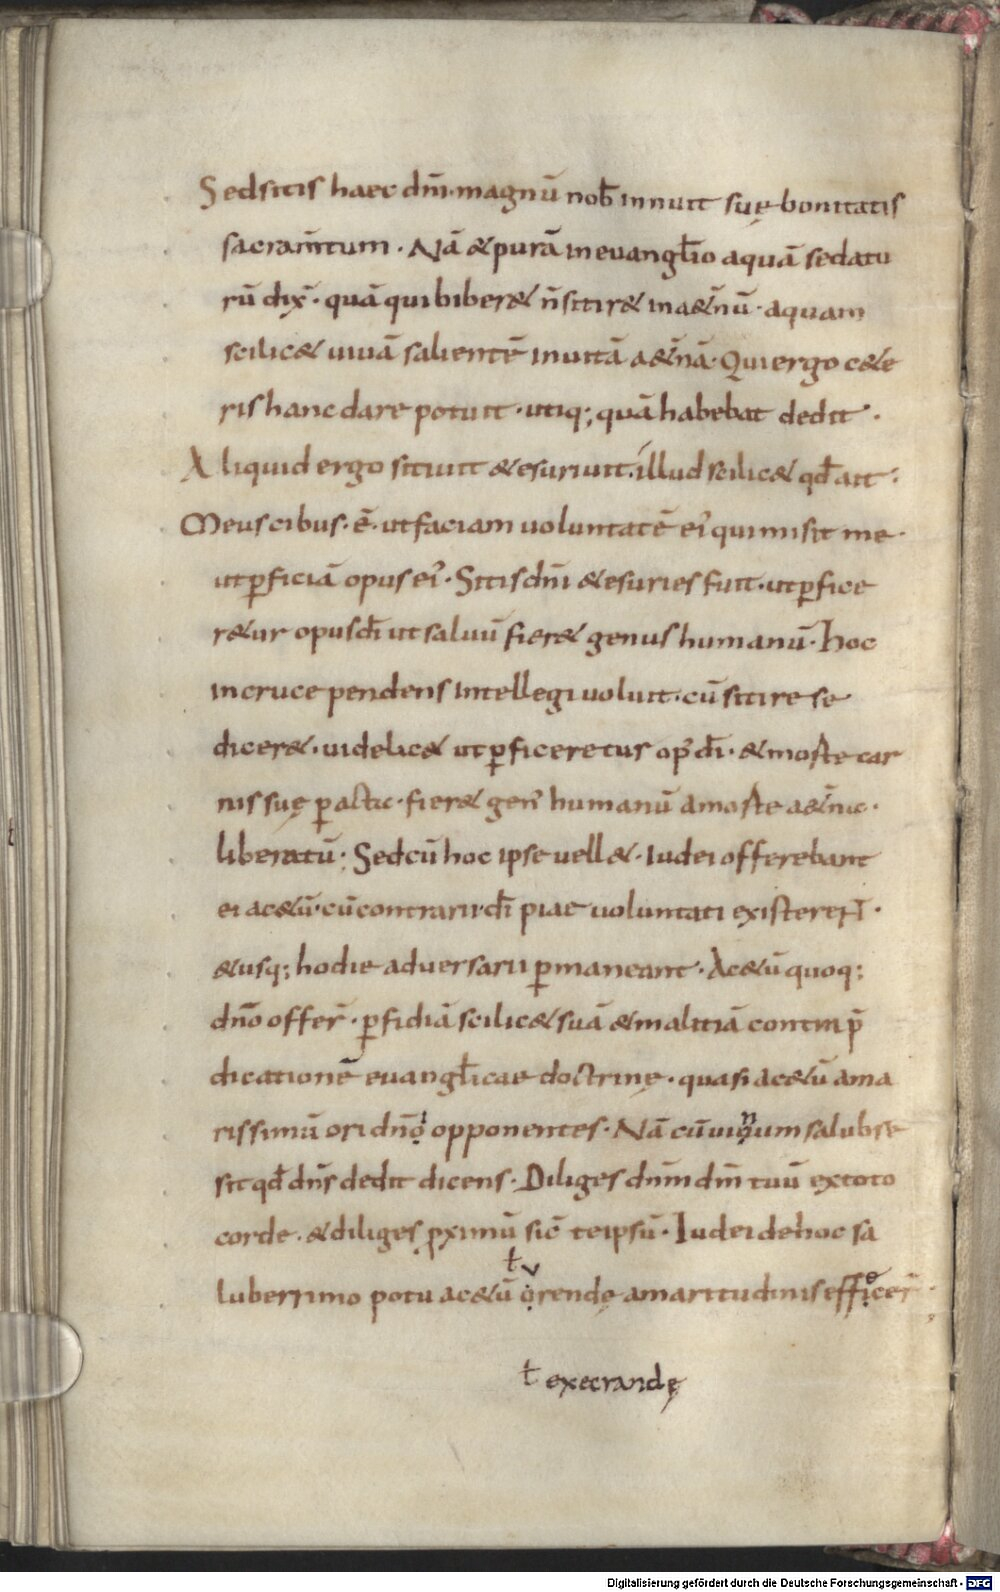 Sedsitis haec dn̄i· magnū nob̄ innuit suę bonitatis
sacram̄tum · Nā & purā in euangl̄io aquā se datu
rū dix̄· quā qui biber& n̄ sitir& in a&̄nū· aquam
scilic& uiuā salientē in uitā a&̄nā· Qui ergo c&e
ris hanc dare potuit · utiq; quā habebat dedit ·
Aliquid ergo sitiuit & esuriuit· illud scilic& qđ ait·
Meus cibus· ē· ut faciam uoluntatē ei' qui misit me·
ut ꝑficiā opus ei'· Sitis dn̄i & esuries fuit· ut ꝑfice
r&ur opus dī ut saluū fier& genus humanū· Hoc
in cruce pendens intellegi uoluit· cū sitire se
dicer&· uidelic& ut ꝑficeretur op' dī· & morte car
nis suę ꝑ actū· fier& gen' humanū a morte a&̄na·
liberatū· Sed cū hoc ipse uell&· Iudei offerebant
ei ac&ū· cū contrarii dī piae uoluntati existerent̄·
& usq; hodie aduersarii ꝑmaneant· Ac&ū quoq;
dn̄o offer̄· ꝑfidiā scilic& suā & malitiā contra p̄
dicationē euangl̄icae doctrinę· quasi ac&ū ama
rissimū ori dn̄o opponentes· Nā cū uinum salubre
sit qđ dn̄s dedit dicens· Diliges dn̄m dm̄ tuū ex toto
corde· & diliges ꝓximū sic̄ te ipsū· Iudei de hoc sa
luberrimo potu ac&ū orrendę amaritudinis efficer̄·
ł execrandę
Digitalisierung gefördert durch die Deutsche Forschungsgemeinschaft - DFG